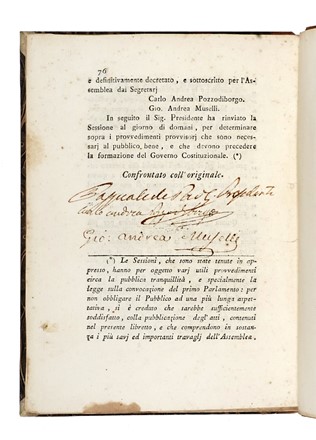 76
e definitivamente decretato, e sottoscritto per l'As-
semblea dai Segretarj
Carlo Andrea Pozzodiborgo.
Gio. Andrea Muselli.
In seguito il Sig. Presidente ha rinviato la
Sessione al giorno di domani, per determinare
sopra i provvedimenti provvisorj che sono neces-
sarj al pubblico bene, e che devono precedere
la formazione del Governo Costituzionale. (*)
Confrontato coll'originale.
Pasquale de Paoli Presidente
Carlo andrea
Gio: andrea Muselli
(*) Le Sessioni, che sono state tenute in ap-
presso, hanno per oggetto varj utili provvedimenti
circa la pubblica tranquillità, e specialmente la
legge sulla convocazione del primo Parlamento: per
non obbligare il Pubblico ad una più lunga aspet-
tativa, si è creduto che sarebbe sufficientemente
soddisfatto, colla pubblicazione degl'atti, contenuti
nel presente libretto, e che comprendono in sostan-
za i più savj ed importanti travaglj dell'Assemblea.